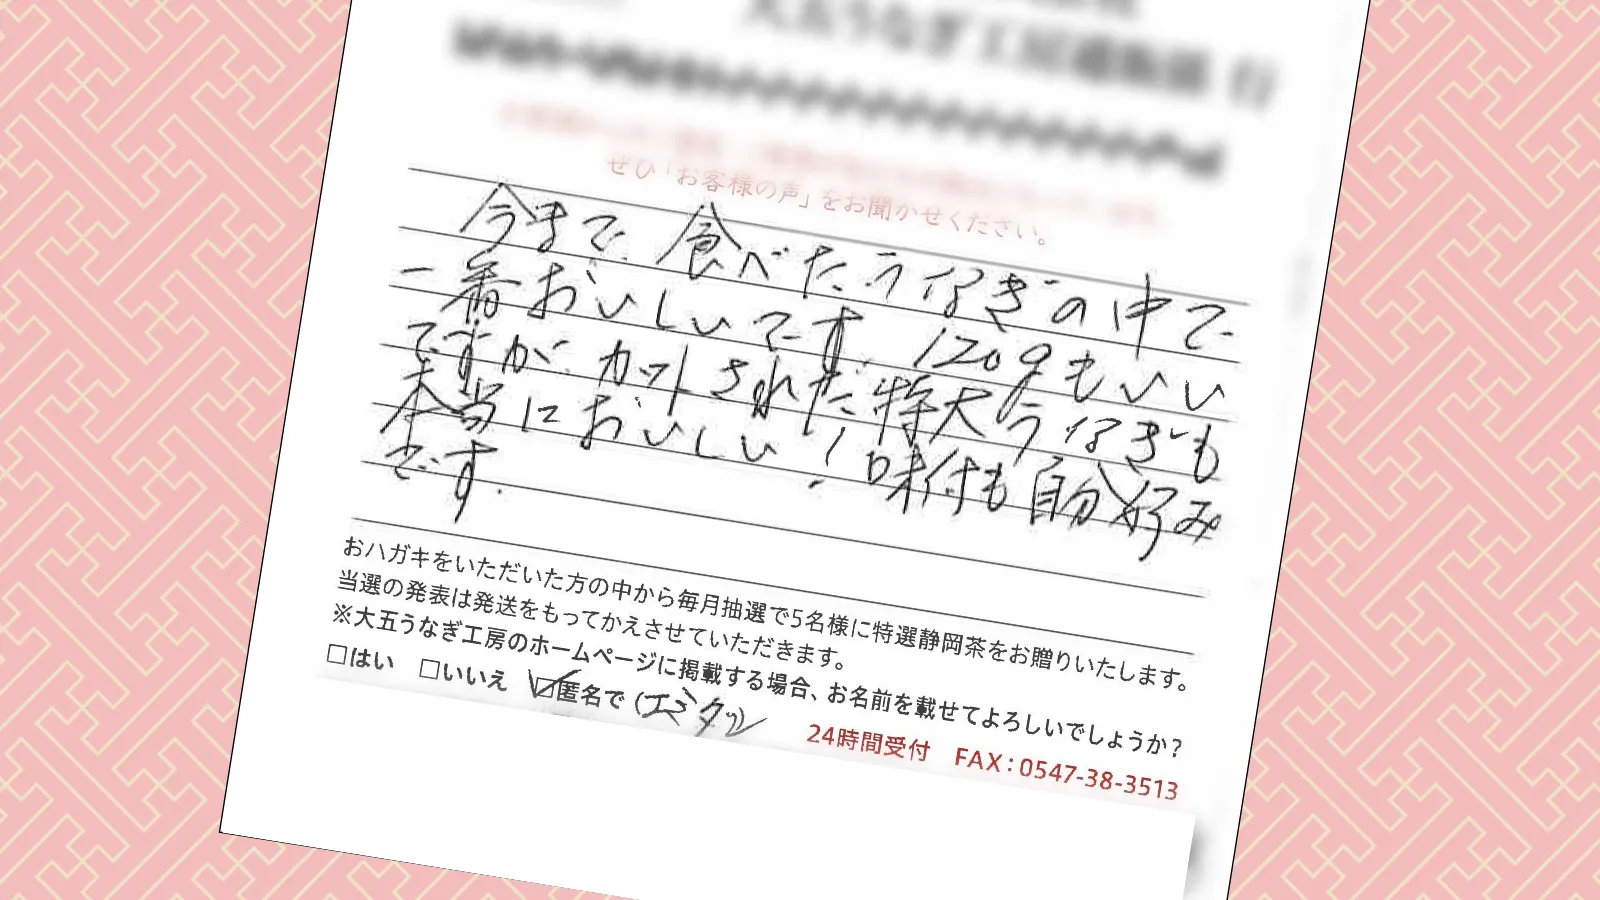 大五うなぎ工房通販係 行
ぜひ「お客様の声」をお聞かせください。
今まで食べたうなぎの中で
一番おいしいです。120gもいい
ですが、カットされた特大うなぎも
本当においしい！味付も自分好み
です。
おハガキをいただいた方の中から毎月抽選で5名様に特選静岡茶をお贈りいたします。
当選の発表は発送をもってかえさせていただきます。
※大五うなぎ工房のホームページに掲載する場合、お名前を載せてよろしいでしょうか？
□はい □いいえ ☑匿名で (エミタツ
24時間受付 FAX：0547-38-3513